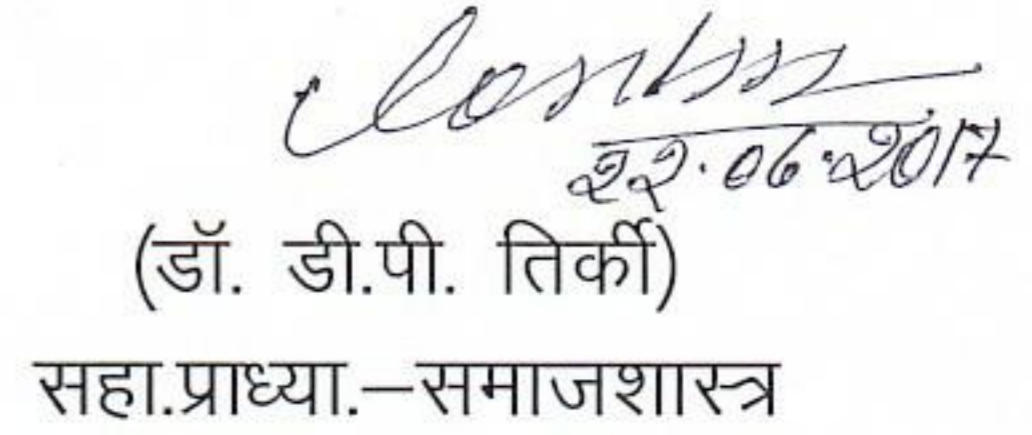 22.06.2017
(डॉ. डी.पी. तिर्की)
सहा.प्राध्या.–समाजशास्त्र